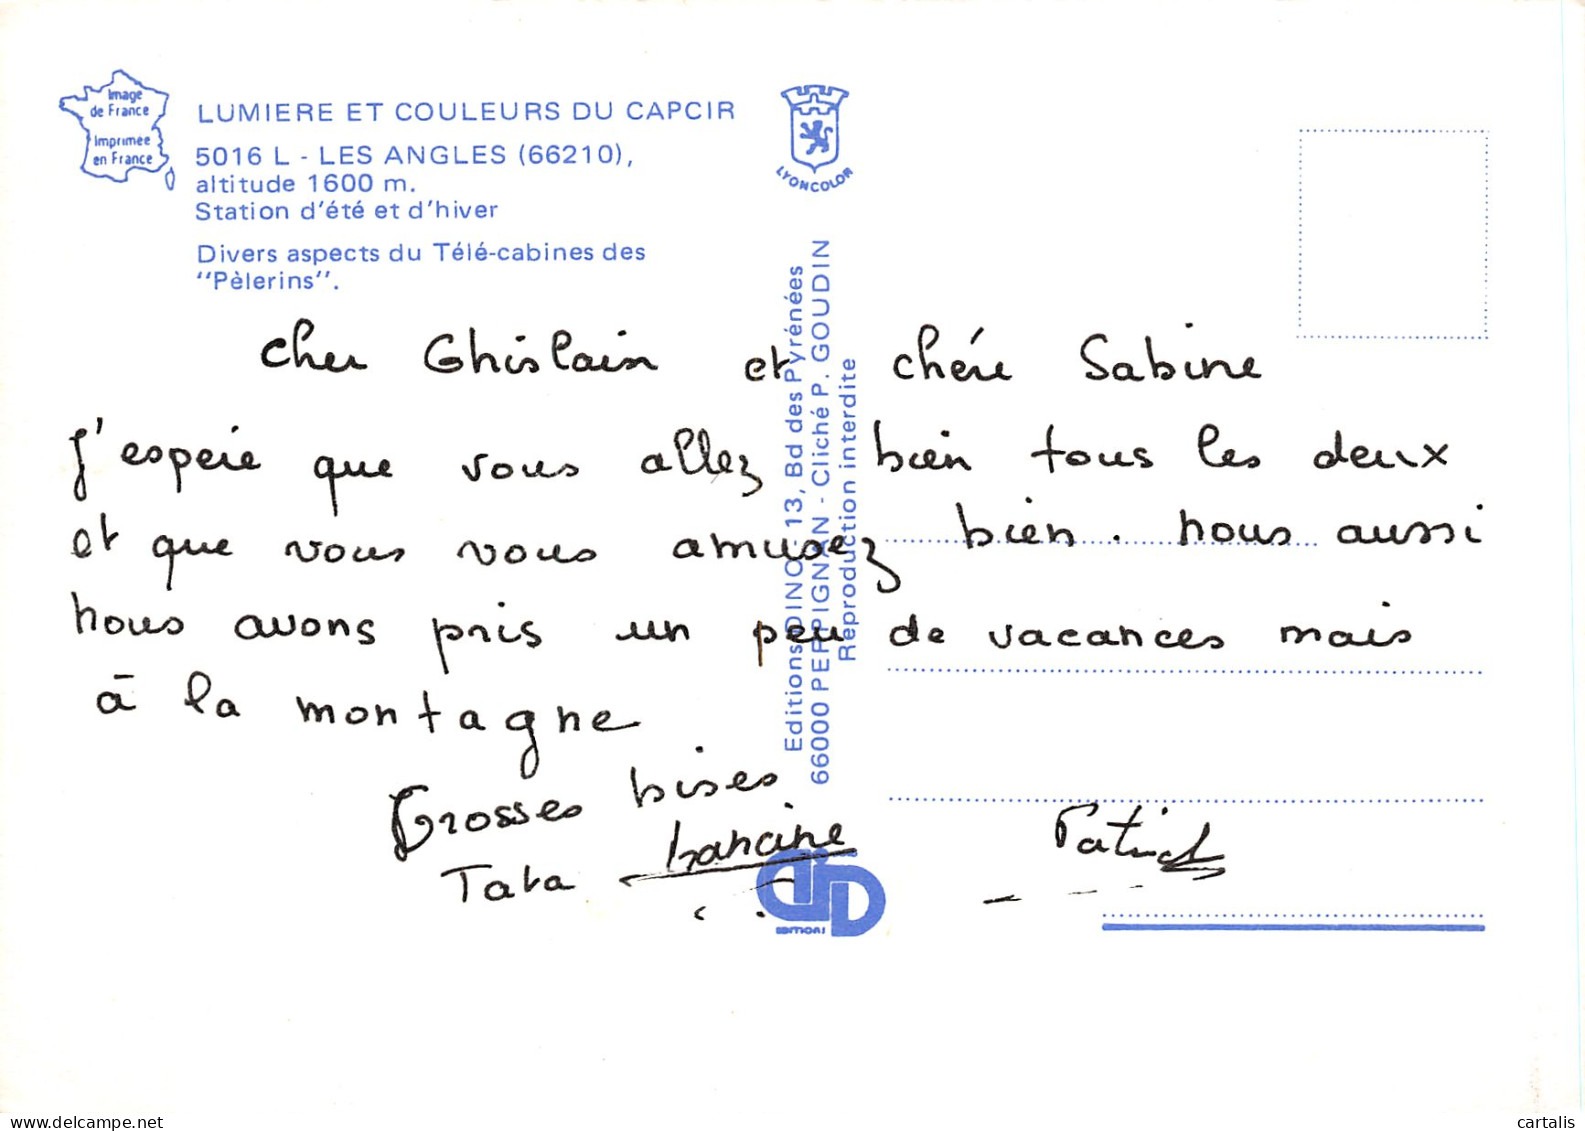 Image
de France
Imprimée
en France
LUMIERE ET COULEURS DU CAPCIR
5016 L - LES ANGLES (66210),
altitude 1600 m.
Station d'été et d'hiver
Divers aspects du Télé-cabines des
"Pèlerins".
LYONCOLOR
Editions DINO - 13, Bd des Pyrénées
66000 PERPIGNAN - Cliché P. GOUDIN
Reproduction interdite
cher Ghislain et chére Sabine
J'espere que vous allez bien tous les deux
et que vous vous amusez bien. nous aussi
nous avons pris un peu de vacances mais
à la montagne
Grosses bises
Tata Francine Patrick
EDITIONS
www.delcampe.net
cartalis